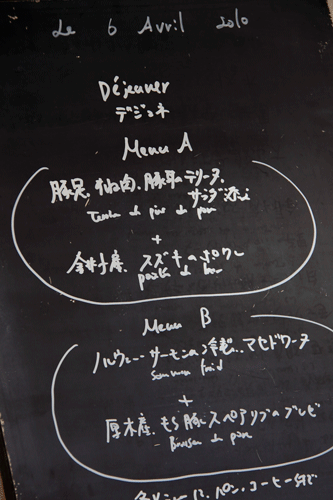 Le 6 Avril 2010
Déjeuner
デジュネ
Menu A
豚足、すね肉、豚耳のテリーヌ、
サラダ添え
Terrine de pied de porc
+
スズキのポワレ
poêlé de bar
Menu B
ノルウェーサーモンの冷製、マセドワーヌ
Saumon froid
+
厚木産、もち豚スペアリブのブレゼ
Braisée de porc
パン、コーヒー付で